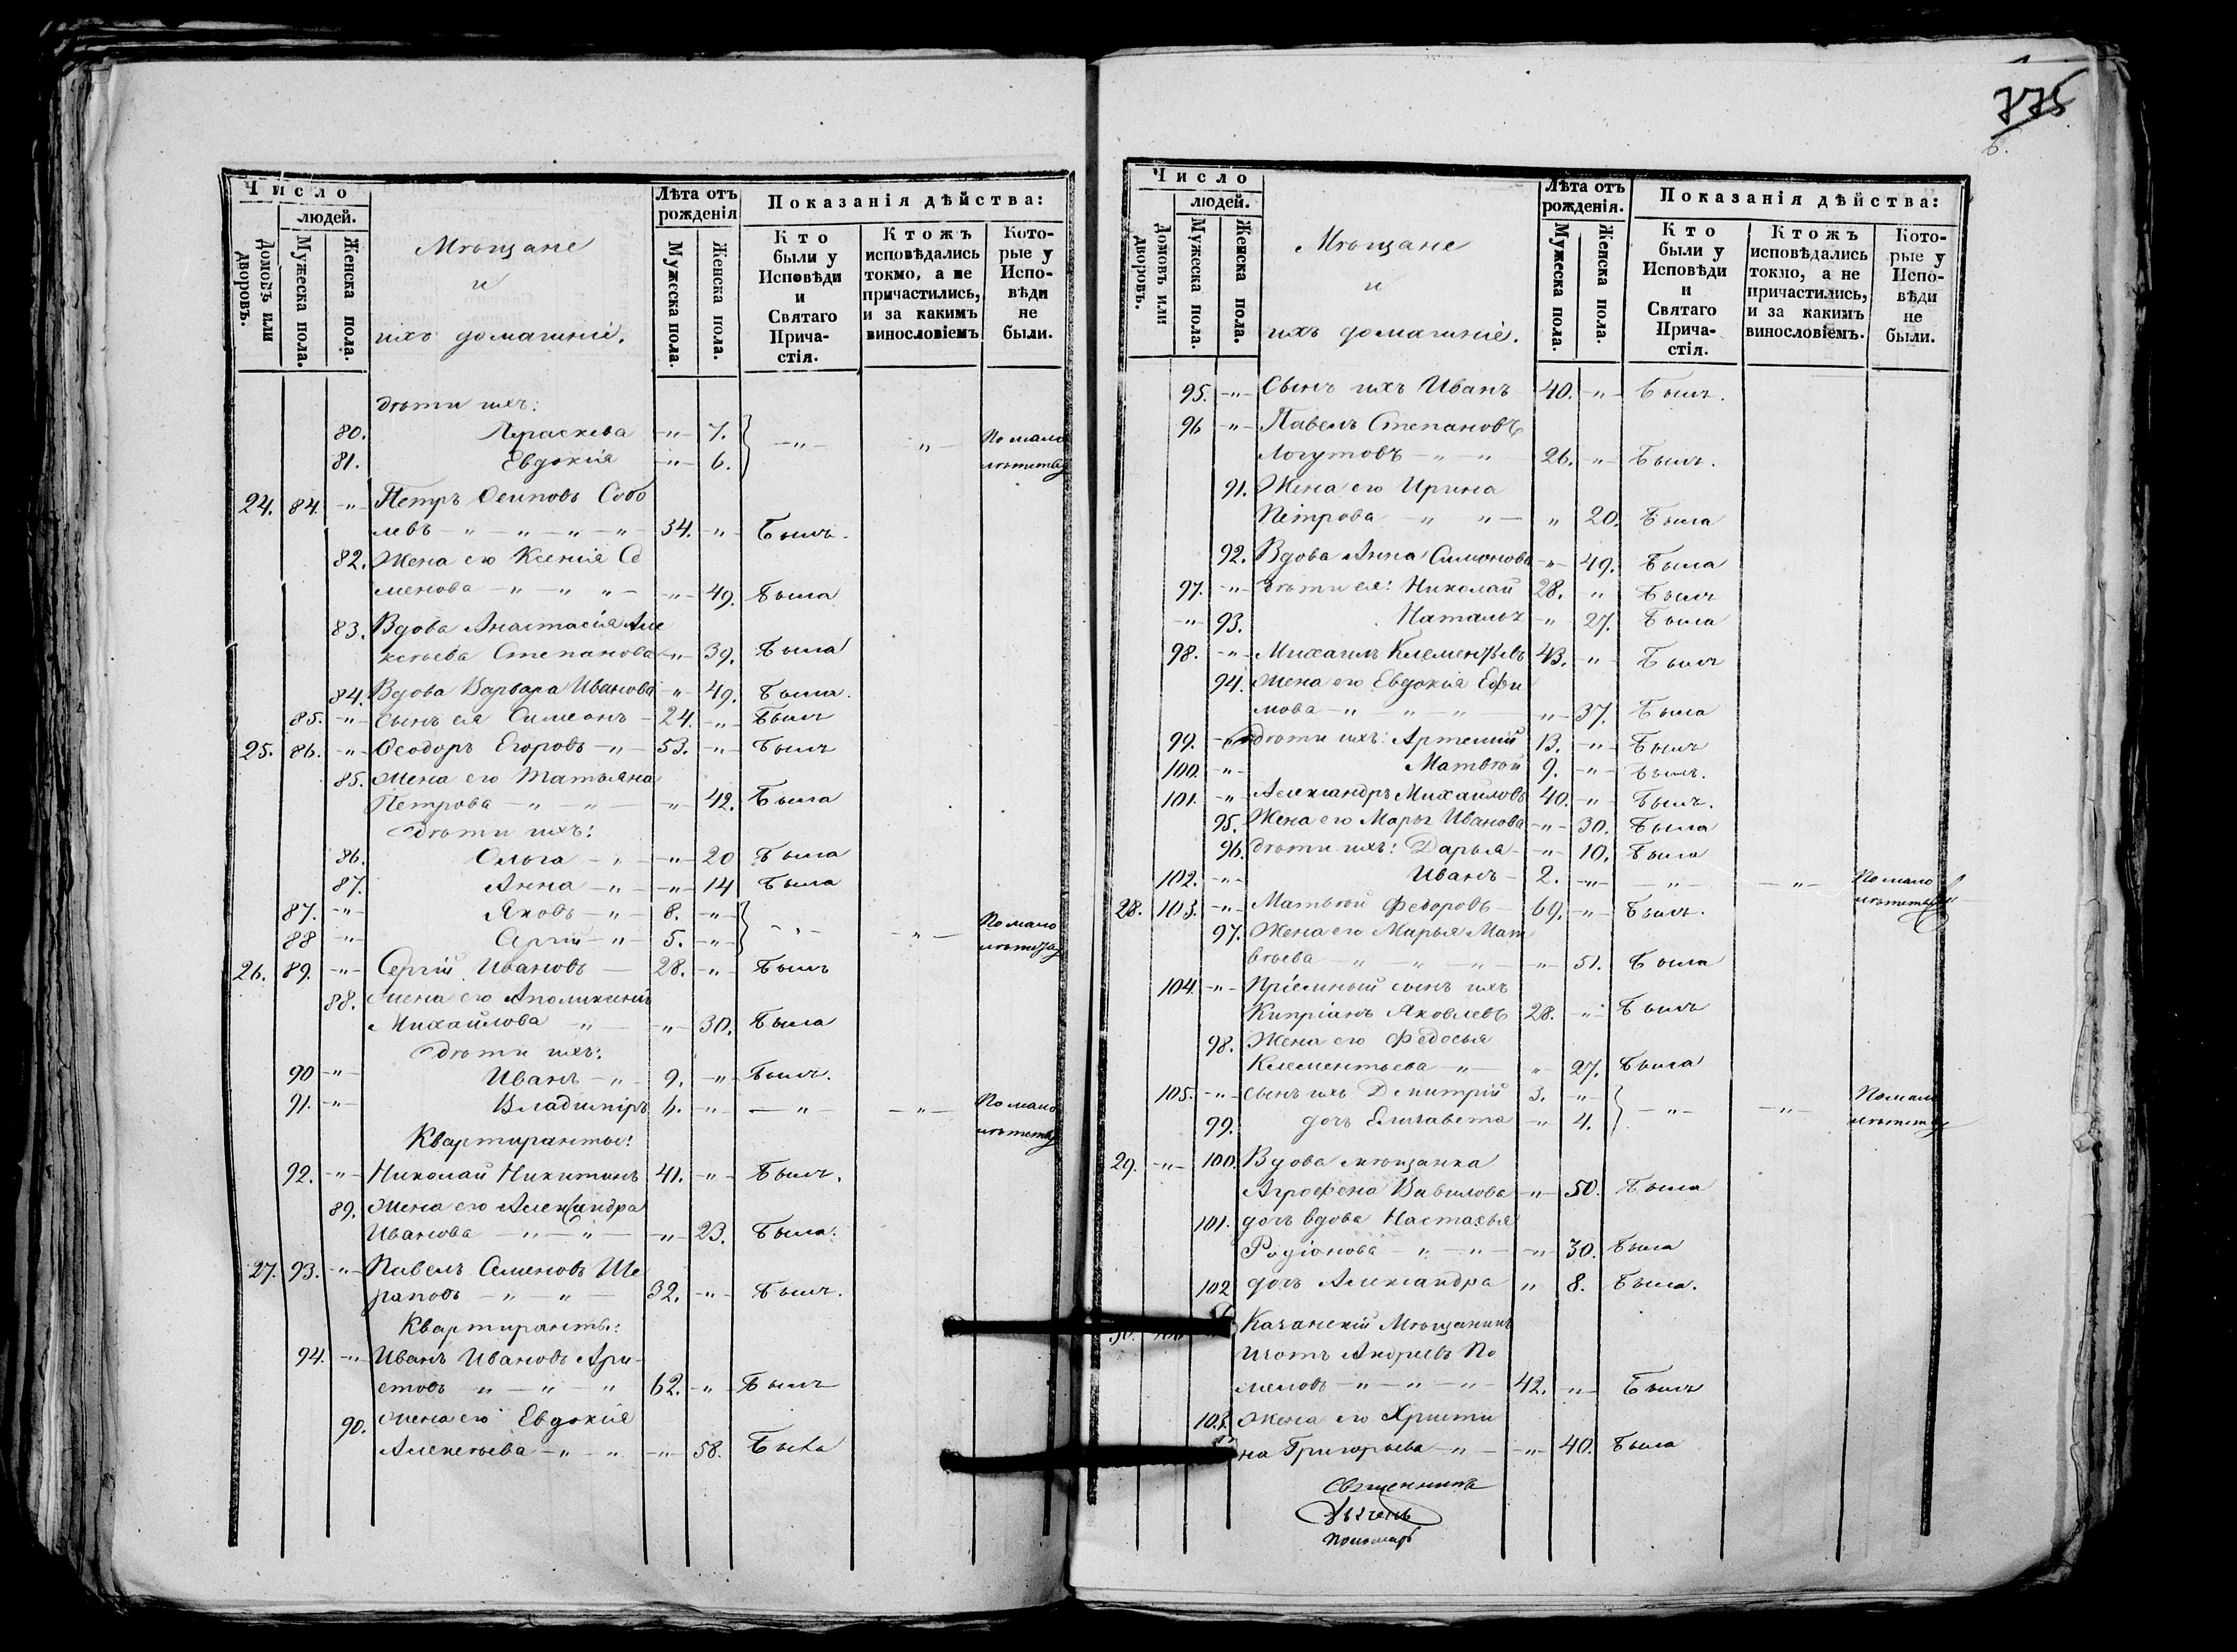 Число
людей.
Домовъ или дворовъ.
Мужеска пола.
Женска пола.
Мѣщане
и
ихъ домашніе.
Лѣта отъ рожденія
Мужеска пола.
Женска пола.
Показанія дѣйства:
Кто были у Исповѣди и Святаго Прича-стія.
Ктожъ исповѣдались токмо, а не причастились, и за какимъ винословіемъ
Кото-рые у Испо-вѣди не были.
дѣти ихъ:
80. Параскева -"- 7. -"- " По мало
81. Евдокія -"- 6. лѣтству
24. 84. -"- Петръ Осиповъ Собо
левъ -"-"-"-"- 34. -"- Былъ.
82. Жена его Ксенія Се
менова -"-"-"- -"- 49. Была
83. Вдова Анастасія Але
ксѣева Степанова -"- 39. Была
84. Вдова Варвара Иванова -"- 49. Была.
85. -"- Сынъ ея Симеонъ - 24. -"- Былъ
25. 86. -"- Ѳеодоръ Егоровъ -"- 53. -"- Былъ
85. Жена его Татьяна
Петрова -"-"- -"- 42. Была
Дѣти ихъ:
86. Ольга -"- -"- 20 Была
87. Анна -"- -"- 14 Была
87. -"- Яковъ -"- 8. -"- -"- -"- По мало
88 -"- Сергій -"- 5. -"- лѣтству
26. 89. -"- Сергій Ивановъ — 28. -"- Былъ
88. Жена его
Михайлова -"- -"- 30. Была
Дѣти ихъ:
90 -"- Иванъ -"- 9. -"- Былъ.
91. -"- Владиміръ 6. -"- -"- -"- По мало
лѣтству
Квартиранты:
92. -"- Николай Никитинъ 41. -"- Былъ.
89. Жена его Александра
Иванова -"-"- -"- 23. Была.
27. 93. -"- Павелъ Семеновъ Ше
раповъ -"-"- 32. -"- Былъ.
Квартиранты:
94. -"- Иванъ Ивановъ Ари-
стовъ "-"-" 62. -"- Былъ
90. Жена его Евдокія
Алексѣева -"-" -"- 58. Была
775
6.
Число
людей.
Домовъ или дворовъ.
Мужеска пола.
Женска пола.
Мѣщане
и
ихъ домашніе.
Лѣта отъ рожденія.
Мужеска пола.
Женска пола.
Показанія дѣйства:
Кто были у Исповѣди и Святаго Прича-стія.
Ктожъ исповѣдались токмо, а не причастились, и за какимъ винословіемъ.
Кото-рые у Испо-вѣди не были.
95. -"- Сынъ ихъ Иванъ 40. -"- Былъ.
96 -"- Павелъ Степановъ
Логутовъ -"-"- 26. -"- Былъ.
91. Жена его Ирина
Петрова -"-"- " 20. Была
92. Вдова Анна Симонова -"- 49. Была
97. -"- Дѣти ея: Николай 28. " Былъ
-"- 93. Наталья " 27. Была
98. -"- Михаилъ Клементьевъ 43. -"- Былъ
94. Жена его Евдокія Ефи
мова -"-"-"- "- 37. Была
99. - Дѣти ихъ: Артемій 13. -"- Былъ
100. -"- Матвѣй 9. -"- Былъ.
101. -"- Александръ Михайловъ 40. -"- Былъ.
95. Жена его Марья Иванова -"- 30. Была
96. Дѣти ихъ: Дарья -"- 10. Была
102. -"- Иванъ - 2. -"- -"- -"- По мало
лѣтству
28. 103. -"- Матвѣй Федоровъ 69. -"- Былъ.
97. Жена его Марья Мат
вѣева -"-"-"- -"- 51. Была
104. -"- Пріемный сынъ ихъ
Кипріанъ Яковлевъ 28. -"- Былъ
98. Жена его Федосья
Клементьева -"- " 27. Была
105. -"- Сынъ ихъ Дмитрій 3. -"- -"- -"- По мало
99. дочь Елизавета -"- 4. лѣтству
29. -"- 100. Вдова мѣщанка
Агрофена Вавилова -"- 50. Была
101. дочь вдова Настасья
Родіонова -"-"- -"- 30. Была
102 дочь Александра " 8. Была.
30. 106 Казанскій Мѣщанинъ
Андреевъ По
меловъ -"-"-"- 42. "- Былъ
103. Жена его Христи
на Григорьева -"- -"- 40. Была
Священникъ
пономарь